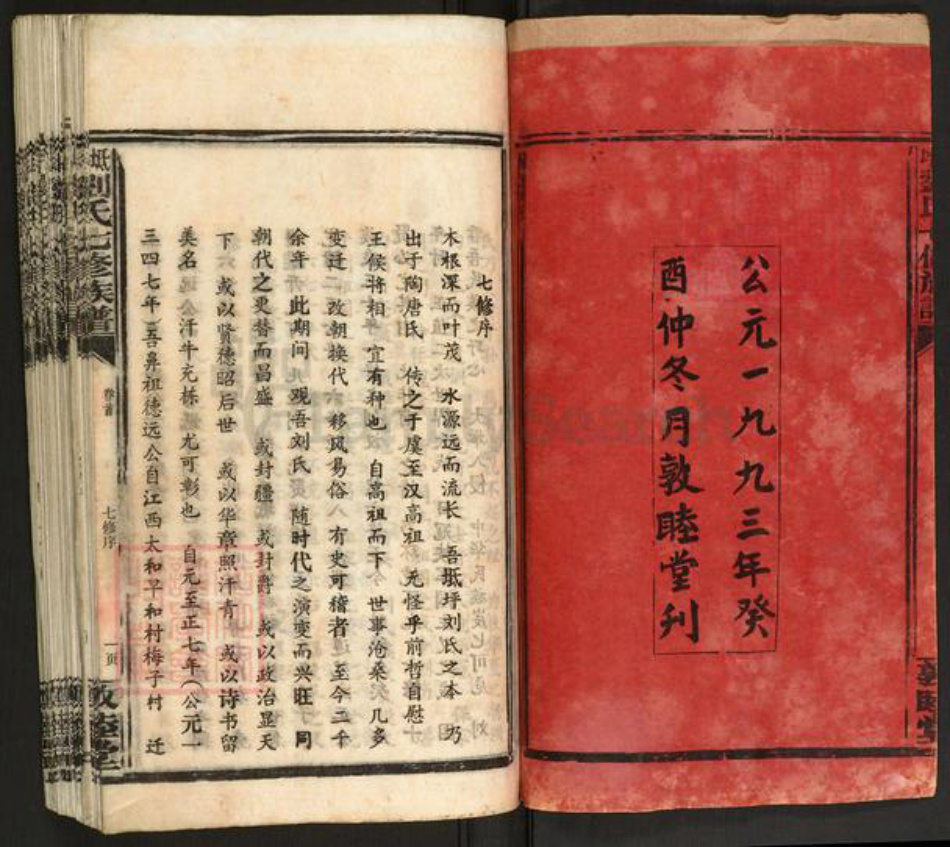 公元一九九三年癸
酉仲冬月敦睦堂刊
七修序
木根深而叶茂 水源远而流长 吾坻坪刘氏之本 乃
出于陶唐氏 传之于虞至汉高祖 无怪乎前哲自慰
王侯将相 宜有种也 自高祖而下 世事沧桑 几多
变迁 改朝换代 移风易俗 有史可稽者 至今二千
余年 此期间 观吾刘氏 随时代之演变而兴旺 同
朝代之更替而昌盛 或封疆 或封爵 或以政治显天
下 或以贤德昭后世 或以华章照汗青 或以诗书留
美名 汗牛充栋 尤可彰也 自元至正七年（公元一
三四七年）吾鼻祖德远公自江西太和早和村梅子村 迁
坻刘氏七修族譜
卷首
七修序
一页
敦睦堂